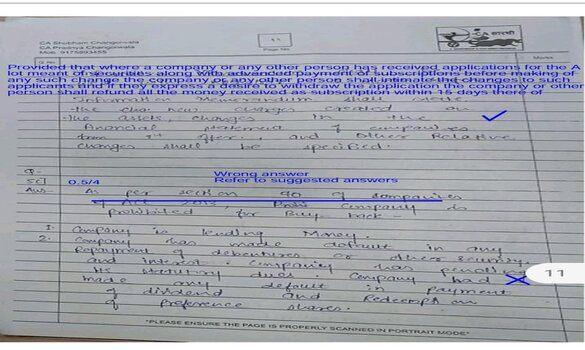 CA Shubham Changerwala
CA Pradnya Changerwala
Mob: 9175893455
Page No
CA सारथी
Q No
Marks
Provided that where a company or any other person has received applications for the A
lot meant of securities along with advanced payment of subscriptions before making of
any such change the company or any other person shall intimate the changes to such
applicants and if they express a desire to withdraw the application the company or other
person shall refund all the money received as subscription within 15 days there of
Information Memorandum shall
the new charges created on
the assets, changes in the
financial statement of companies
from offer, and other Relative
changes shall be specified.
Q-
5c)
0.5/4
Wrong answer
Refer to suggested answers
Ans-
As per section 70 of companies
of Act 2013, company is
prohibited for Buy back
1. Company is lending Money.
2. Company has made default in any
Repayment of debentures or other security
and interest. Company has pending
its statutory dues. Company had
made any default in payment
of dividend and Redemption
of preference shares.
11
"PLEASE ENSURE THE PAGE IS PROPERLY SCANNED IN PORTRAIT MODE"